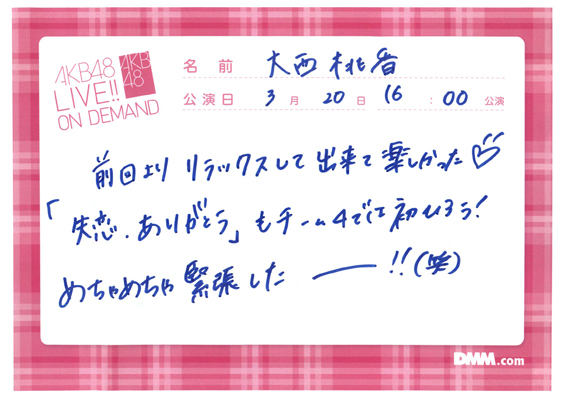 AKB48
LIVE!!
ON DEMAND
AKB
48
名前 大西桃香
公演日 3月20日 16:00公演
前回より リラックスして 出来て 楽しかった♡
「失恋、ありがとう」もチーム4では初ひろう!
めちゃめちゃ緊張した ──!!(笑)
DMM.com